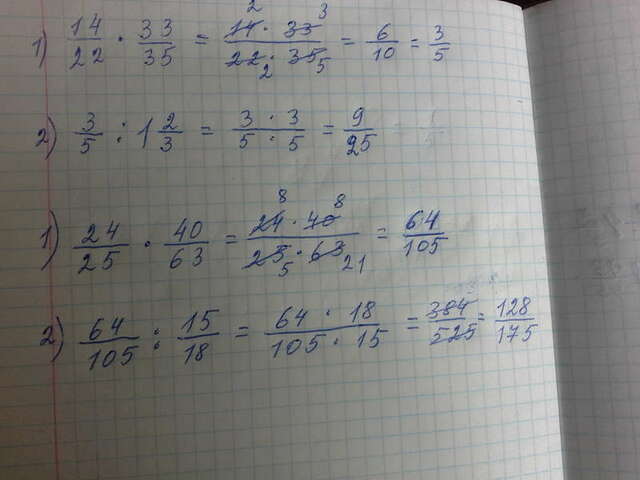 1) 14/22 · 33/35 = 14 2 · 33 3/22 2 · 35 5 = 6/10 = 3/5
2) 3/5 : 1 2/3 = 3 · 3/5 · 5 = 9/25
1) 24/25 · 40/63 = 24 8 · 40 8/25 5 · 63 21 = 64/105
2) 64/105 : 15/18 = 64 · 18/105 · 15 = 384/525 = 128/175